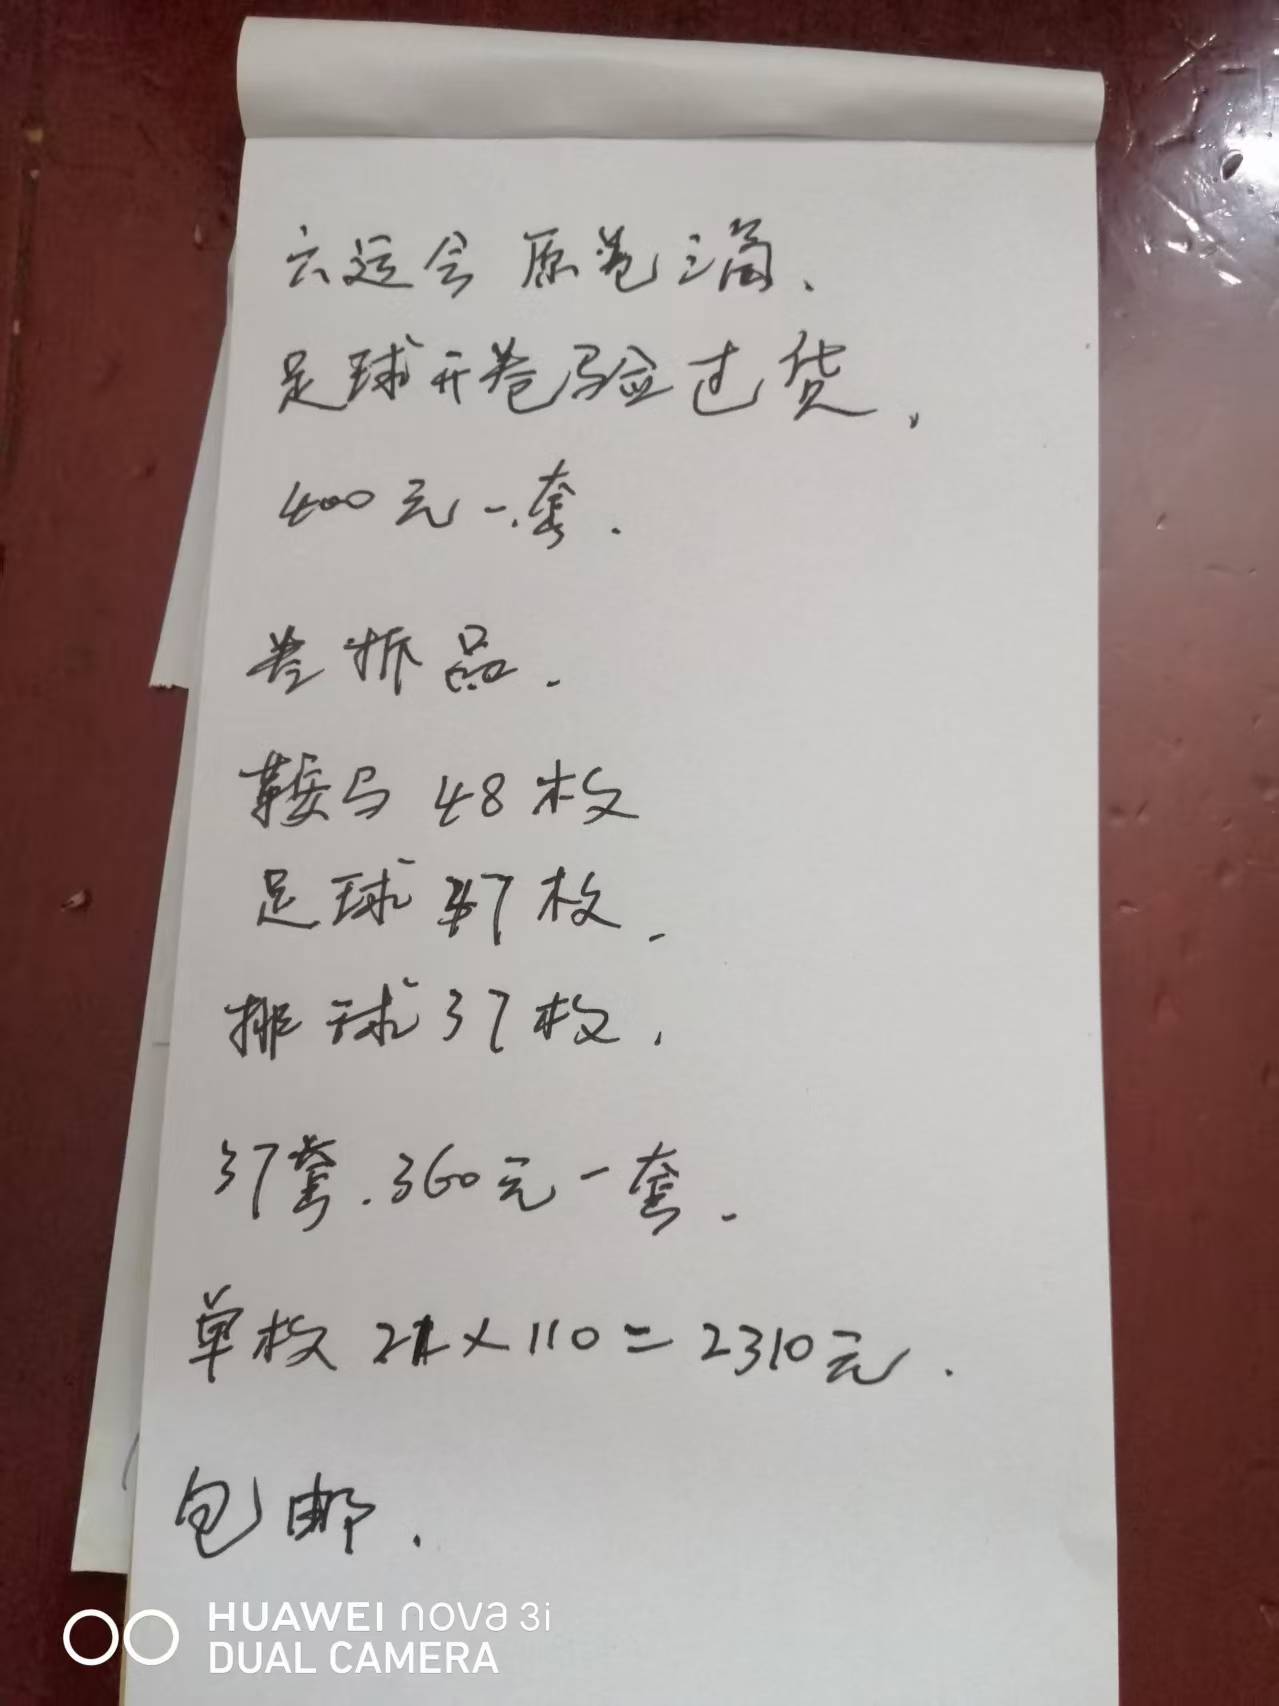 六运会 原卷三筒、
足球开卷验过货、
400元一套.
卷拆品.
鞍马 48枚
足球 47枚.
排球 37枚.
37套.360元一套.
单枚 21×110=2310元.
包邮.
HUAWEI nova 3i
DUAL CAMERA